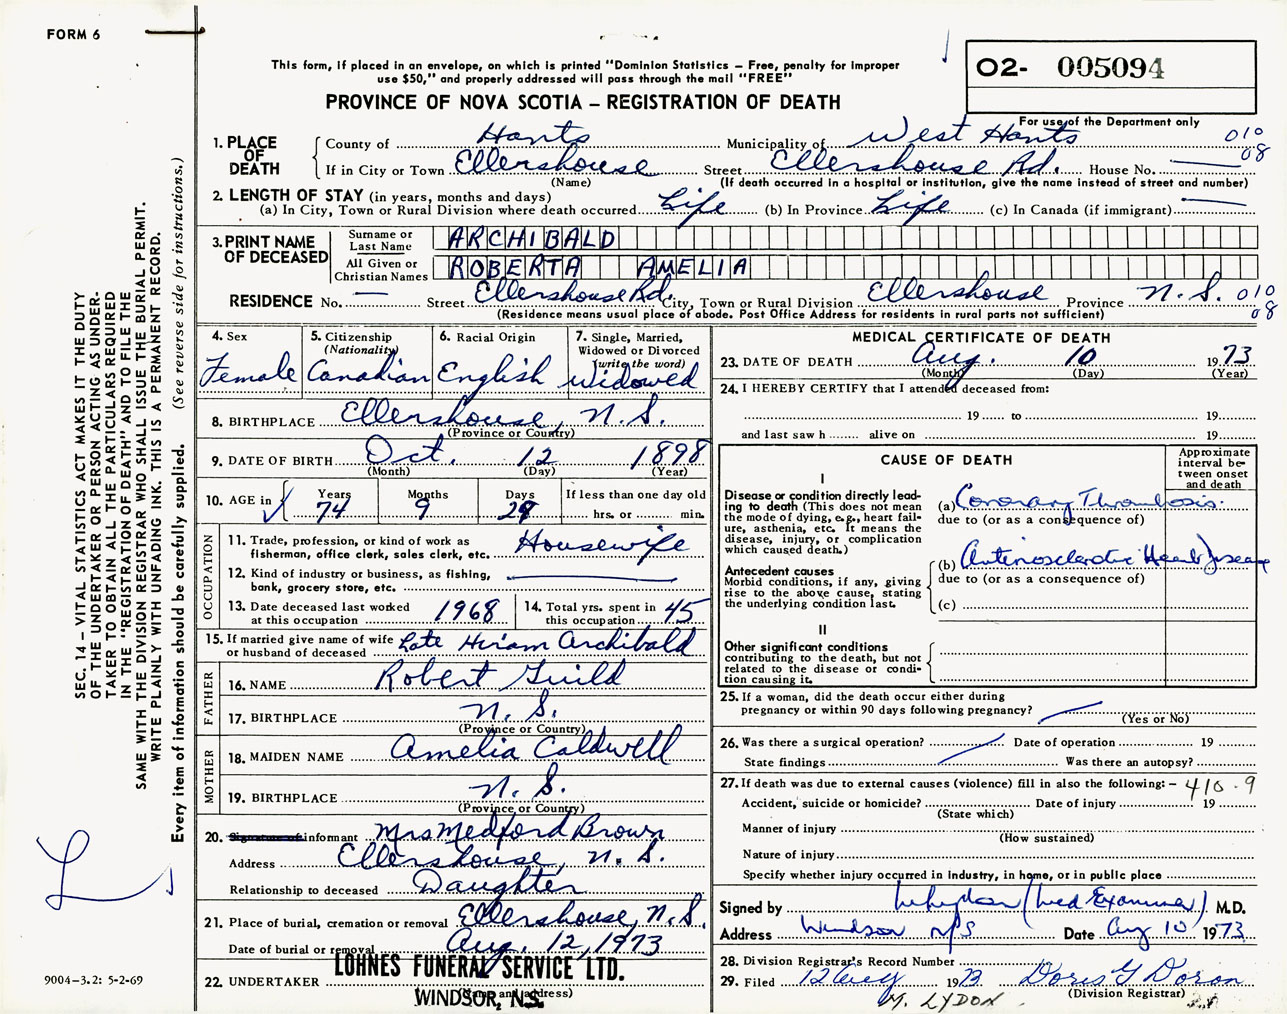 FORM 6
This form, if placed in an envelope, on which is printed "Dominion Statistics – Free, penalty for improper
use $50," and properly addressed will pass through the mail "FREE"
PROVINCE OF NOVA SCOTIA – REGISTRATION OF DEATH
02- 005094
For use of the Department only
010
08
1. PLACE OF DEATH
County of Hants Municipality of West Hants
If in City or Town Ellershouse Street Ellershouse Rd. House No. —
(Name) (If death occurred in a hospital or institution, give the name instead of street and number)
2. LENGTH OF STAY (in years, months and days)
(a) In City, Town or Rural Division where death occurred Life (b) In Province Life (c) In Canada (if immigrant) —
3. PRINT NAME OF DECEASED
Surname or Last Name ARCHIBALD
All Given or Christian Names ROBERTA AMELIA
RESIDENCE No. — Street Ellershouse Rd. City, Town or Rural Division Ellershouse Province N.S. 010
08
(Residence means usual place of abode. Post Office Address for residents in rural parts not sufficient)
4. Sex
Female
5. Citizenship
(Nationality)
Canadian
6. Racial Origin
English
7. Single, Married,
Widowed or Divorced
(write the word)
Widowed
8. BIRTHPLACE Ellershouse, N.S.
(Province or Country)
9. DATE OF BIRTH Oct. 12 1898
(Month) (Day) (Year)
10. AGE in
Years Months Days If less than one day old
74 9 29 hrs. or min.
OCCUPATION
11. Trade, profession, or kind of work as
fisherman, office clerk, sales clerk, etc. Housewife
12. Kind of industry or business, as fishing,
bank, grocery store, etc.
13. Date deceased last worked
at this occupation 1968
14. Total yrs. spent in
this occupation 45
15. If married give name of wife
or husband of deceased Late Hiram Archibald
FATHER
16. NAME Robert Guild
17. BIRTHPLACE N.S.
(Province or Country)
MOTHER
18. MAIDEN NAME Amelia Caldwell
19. BIRTHPLACE N.S.
(Province or Country)
20. Signature of informant Mrs Medford Brown
Address Ellershouse, N.S.
Relationship to deceased Daughter
21. Place of burial, cremation or removal Ellershouse, N.S.
Date of burial or removal Aug. 12, 1973
22. UNDERTAKER LOHNES FUNERAL SERVICE LTD.
(Name and address)
WINDSOR, N.S.
MEDICAL CERTIFICATE OF DEATH
23. DATE OF DEATH Aug. 10 1973
(Month) (Day) (Year)
24. I HEREBY CERTIFY that I attended deceased from:
19 to 19
and last saw h alive on 19
CAUSE OF DEATH
Approximate
interval be-
tween onset
and death
I
Disease or condition directly lead-
ing to death (This does not
mean the mode of dying, e.g., heart fail-
ure, asthenia, etc. It means the
disease, injury, or complication
which caused death.)
(a) Coronary Thrombosis.
due to (or as a consequence of)
Antecedent causes
Morbid conditions, if any, giving
rise to the above cause, stating
the underlying condition last.
(b) Arteriosclerotic Heart Disease
due to (or as a consequence of)
(c)
II
Other significant conditions
contributing to the death, but not
related to the disease or condi-
tion causing it.
25. If a woman, did the death occur either during
pregnancy or within 90 days following pregnancy?
(Yes or No)
26. Was there a surgical operation? Date of operation 19
State findings Was there an autopsy?
27. If death was due to external causes (violence) fill in also the following: – 410.9
Accident, suicide or homicide? Date of injury 19
(State which)
Manner of injury
(How sustained)
Nature of injury
Specify whether injury occurred in industry, in home, or in public place
Signed by (Med Examiner) M.D.
Address Windsor NS Date Aug 10 1973
28. Division Registrar's Record Number
29. Filed 12 Aug 1973 Doris G Doron
(Division Registrar)
M. LYDON
SEC. 14 – VITAL STATISTICS ACT MAKES IT THE DUTY
OF THE UNDERTAKER OR PERSON ACTING AS UNDER-
TAKER TO OBTAIN ALL THE PARTICULARS REQUIRED
IN THE "REGISTRATION OF DEATH" AND TO FILE THE
SAME WITH THE DIVISION REGISTRAR WHO SHALL ISSUE THE BURIAL PERMIT.
WRITE PLAINLY WITH UNFADING INK. THIS IS A PERMANENT RECORD.
Every item of information should be carefully supplied. (See reverse side for instructions.)
L
9004-3.2: 5-2-69